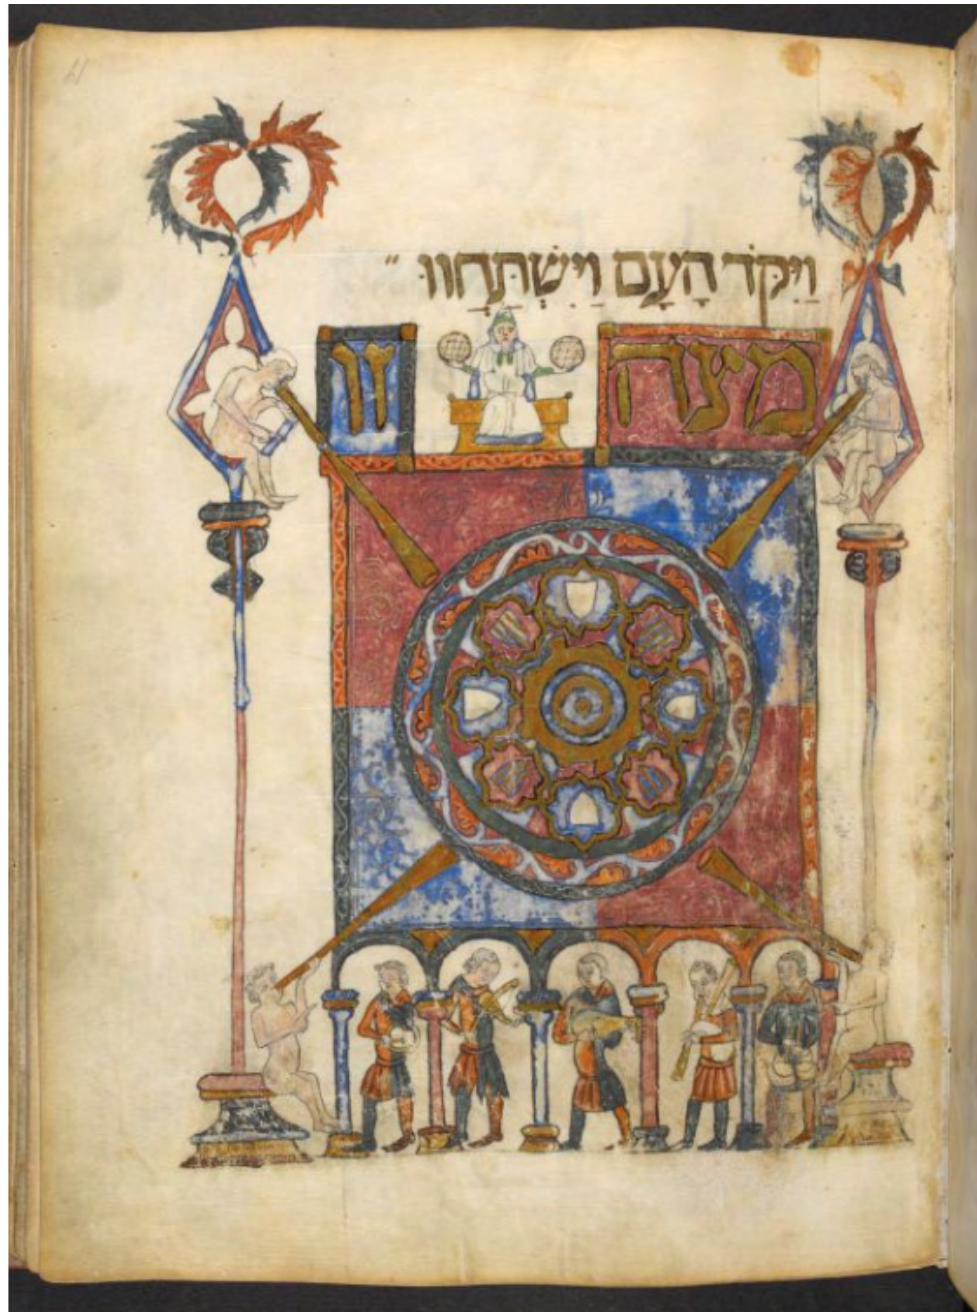 61
וַיִּקֹּד הָעָם וַיִּשְׁתַּחֲווּ
מצה זו